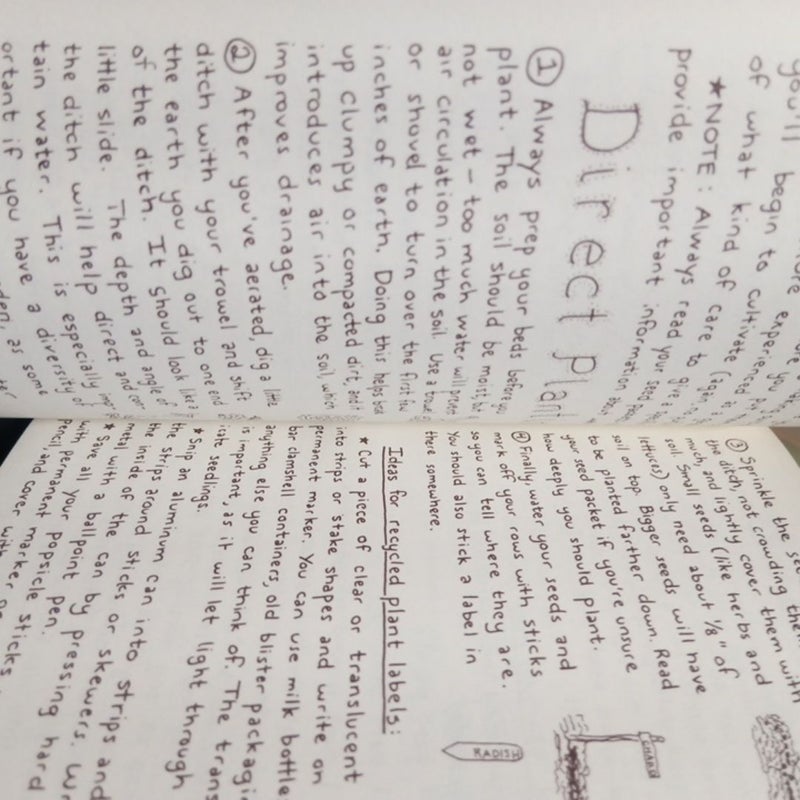 you'll begin to
of what kind of care to
★NOTE: Always read your seed
provide important information
Direct Plant
① Always prep your beds before you
plant. The soil should be moist, but
not wet — too much water will prevent
air circulation in the soil. Use a trowel
or shovel to turn over the first few
inches of earth. Doing this helps break
up clumpy or compacted dirt, and it
introduces air into the soil, which
improves drainage.
② After you've aerated, dig a little
ditch with your trowel and shift
the earth you dig out to one end
of the ditch. It should look like a
little slide. The depth and angle of
the ditch will help direct and
tain water. This is especially
ortant if you have a diversity of
as some
experienced
cultivate
③ Sprinkle the
the ditch, not crowding them
much, and lightly cover them with
soil. Small seeds (like herbs and
lettuces) only need about 1/8" of
soil on top. Bigger seeds will have
to be planted farther down. Read
your seed packet if you're unsure
how deeply you should plant.
④ Finally, water your seeds and
mark off your rows with sticks
so you can tell where they are.
You should also stick a label in
there somewhere.
CHARD
RADISH
Ideas for recycled plant labels:
★ Cut a piece of clear or translucent
into strips or stake shapes and write on
permanent marker. You can use milk bottle
bar clamshell containers, old blister packagi
anything else you can think of. The trans
is important, as it will let light through
icate seedlings.
★ Snip an aluminum can into strips and
the strips around sticks or skewers. Wr
the inside of the can by pressing hard
metal with a ballpoint pen.
★ Save all your popsicle sticks
with permanent marker
pencil, and cover